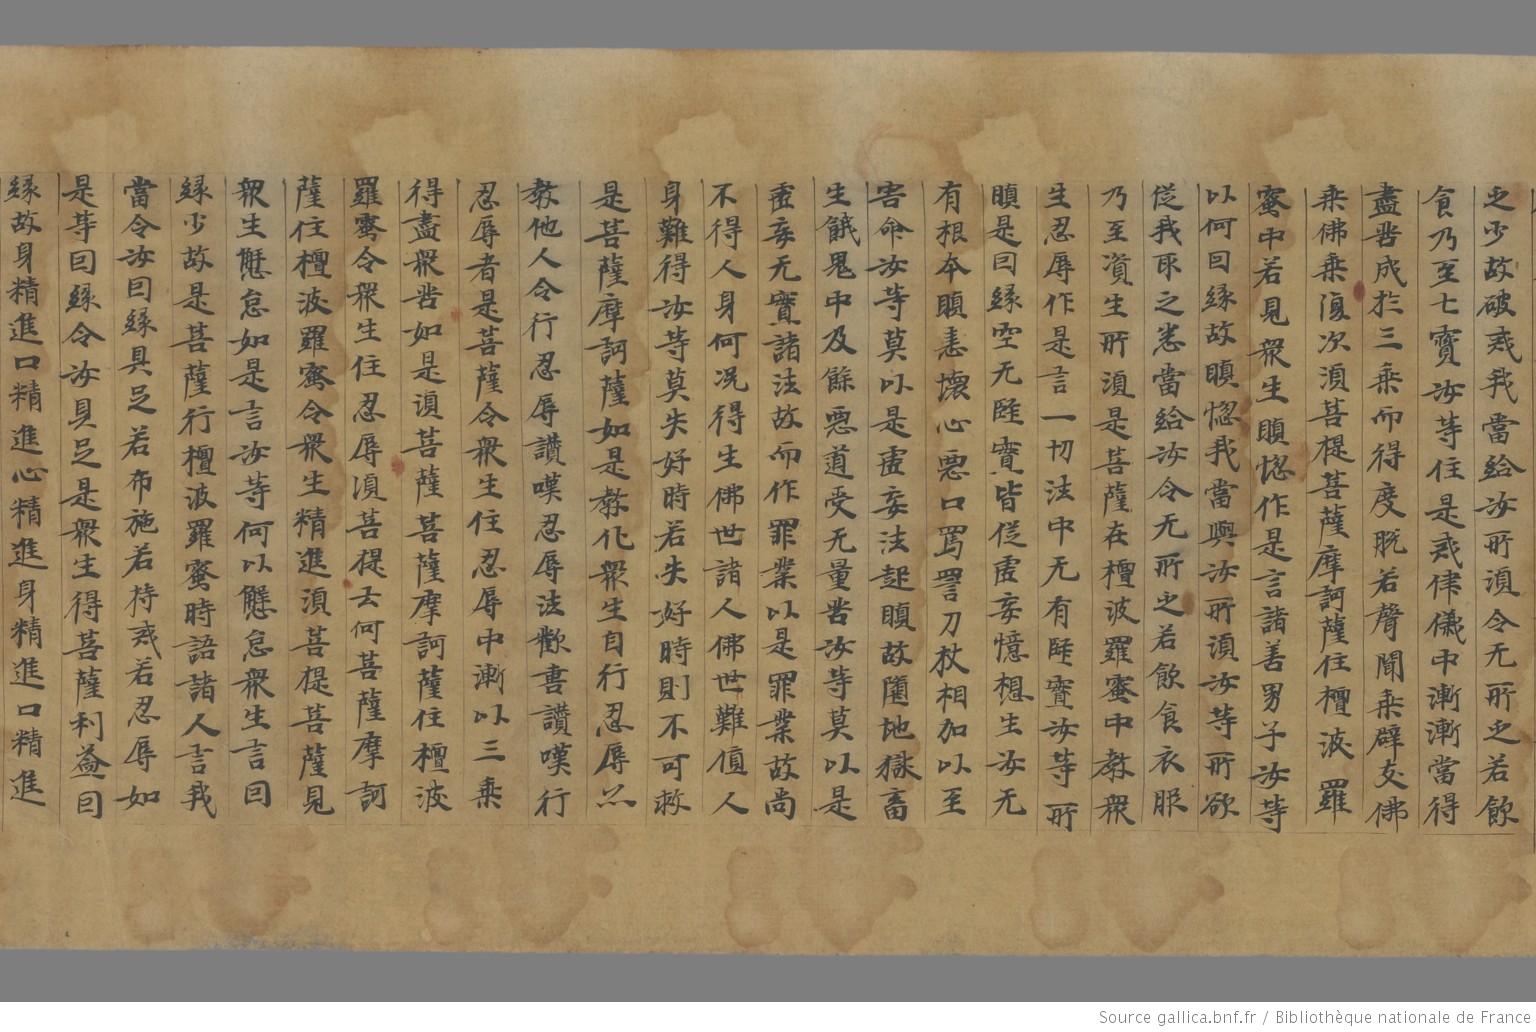 乏少故破戒我當給汝所須令无所乏若飲
食乃至七寶汝等住是戒律儀中漸漸當得
盡苦成於三乘而得度脫若聲聞乘辟支佛
乘佛乘復次須菩提菩薩摩訶薩住檀波羅
蜜中若見衆生瞋惚作是言諸善男子汝等
以何曰縁故瞋惚我當與汝所須汝等所欲
從我取之悉當給汝令无所乏若飲食衣服
乃至資生所須是菩薩在檀波羅蜜中教衆
生忍辱作是言一切法中无有堅實汝等所
瞋是曰縁空无堅實皆從虛妄憶想生汝无
有根本瞋恚壞心惡口罵詈刀杖相加以至
害命汝等莫以是虛妄法起瞋故墮地獄畜
生餓鬼中及餘惡道受无量苦汝等莫以是
虛妄无實諸法故而作罪業以是罪業故尚
不得人身何况得生佛世諸人佛世難値人
身難得汝等莫失好時若失好時則不可救
是菩薩摩訶薩如是教化衆生自行忍辱亦
教他人令行忍辱讚嘆忍辱法歡喜讚嘆行
忍辱者是菩薩令衆生住忍辱中漸以三乘
得盡衆苦如是須菩薩菩薩摩訶薩住檀波
羅蜜令衆生住忍辱須菩提云何菩薩摩訶
薩住檀波羅蜜令衆生精進須菩提菩薩見
衆生懈怠如是言汝等何以懈怠衆生言曰
縁少故是菩薩行檀波羅蜜時語諸人言我
當令汝曰縁具足若布施若持戒若忍辱如
是等曰縁令汝具足是衆生得菩薩利益曰
縁故身精進口精進心精進身精進口精進